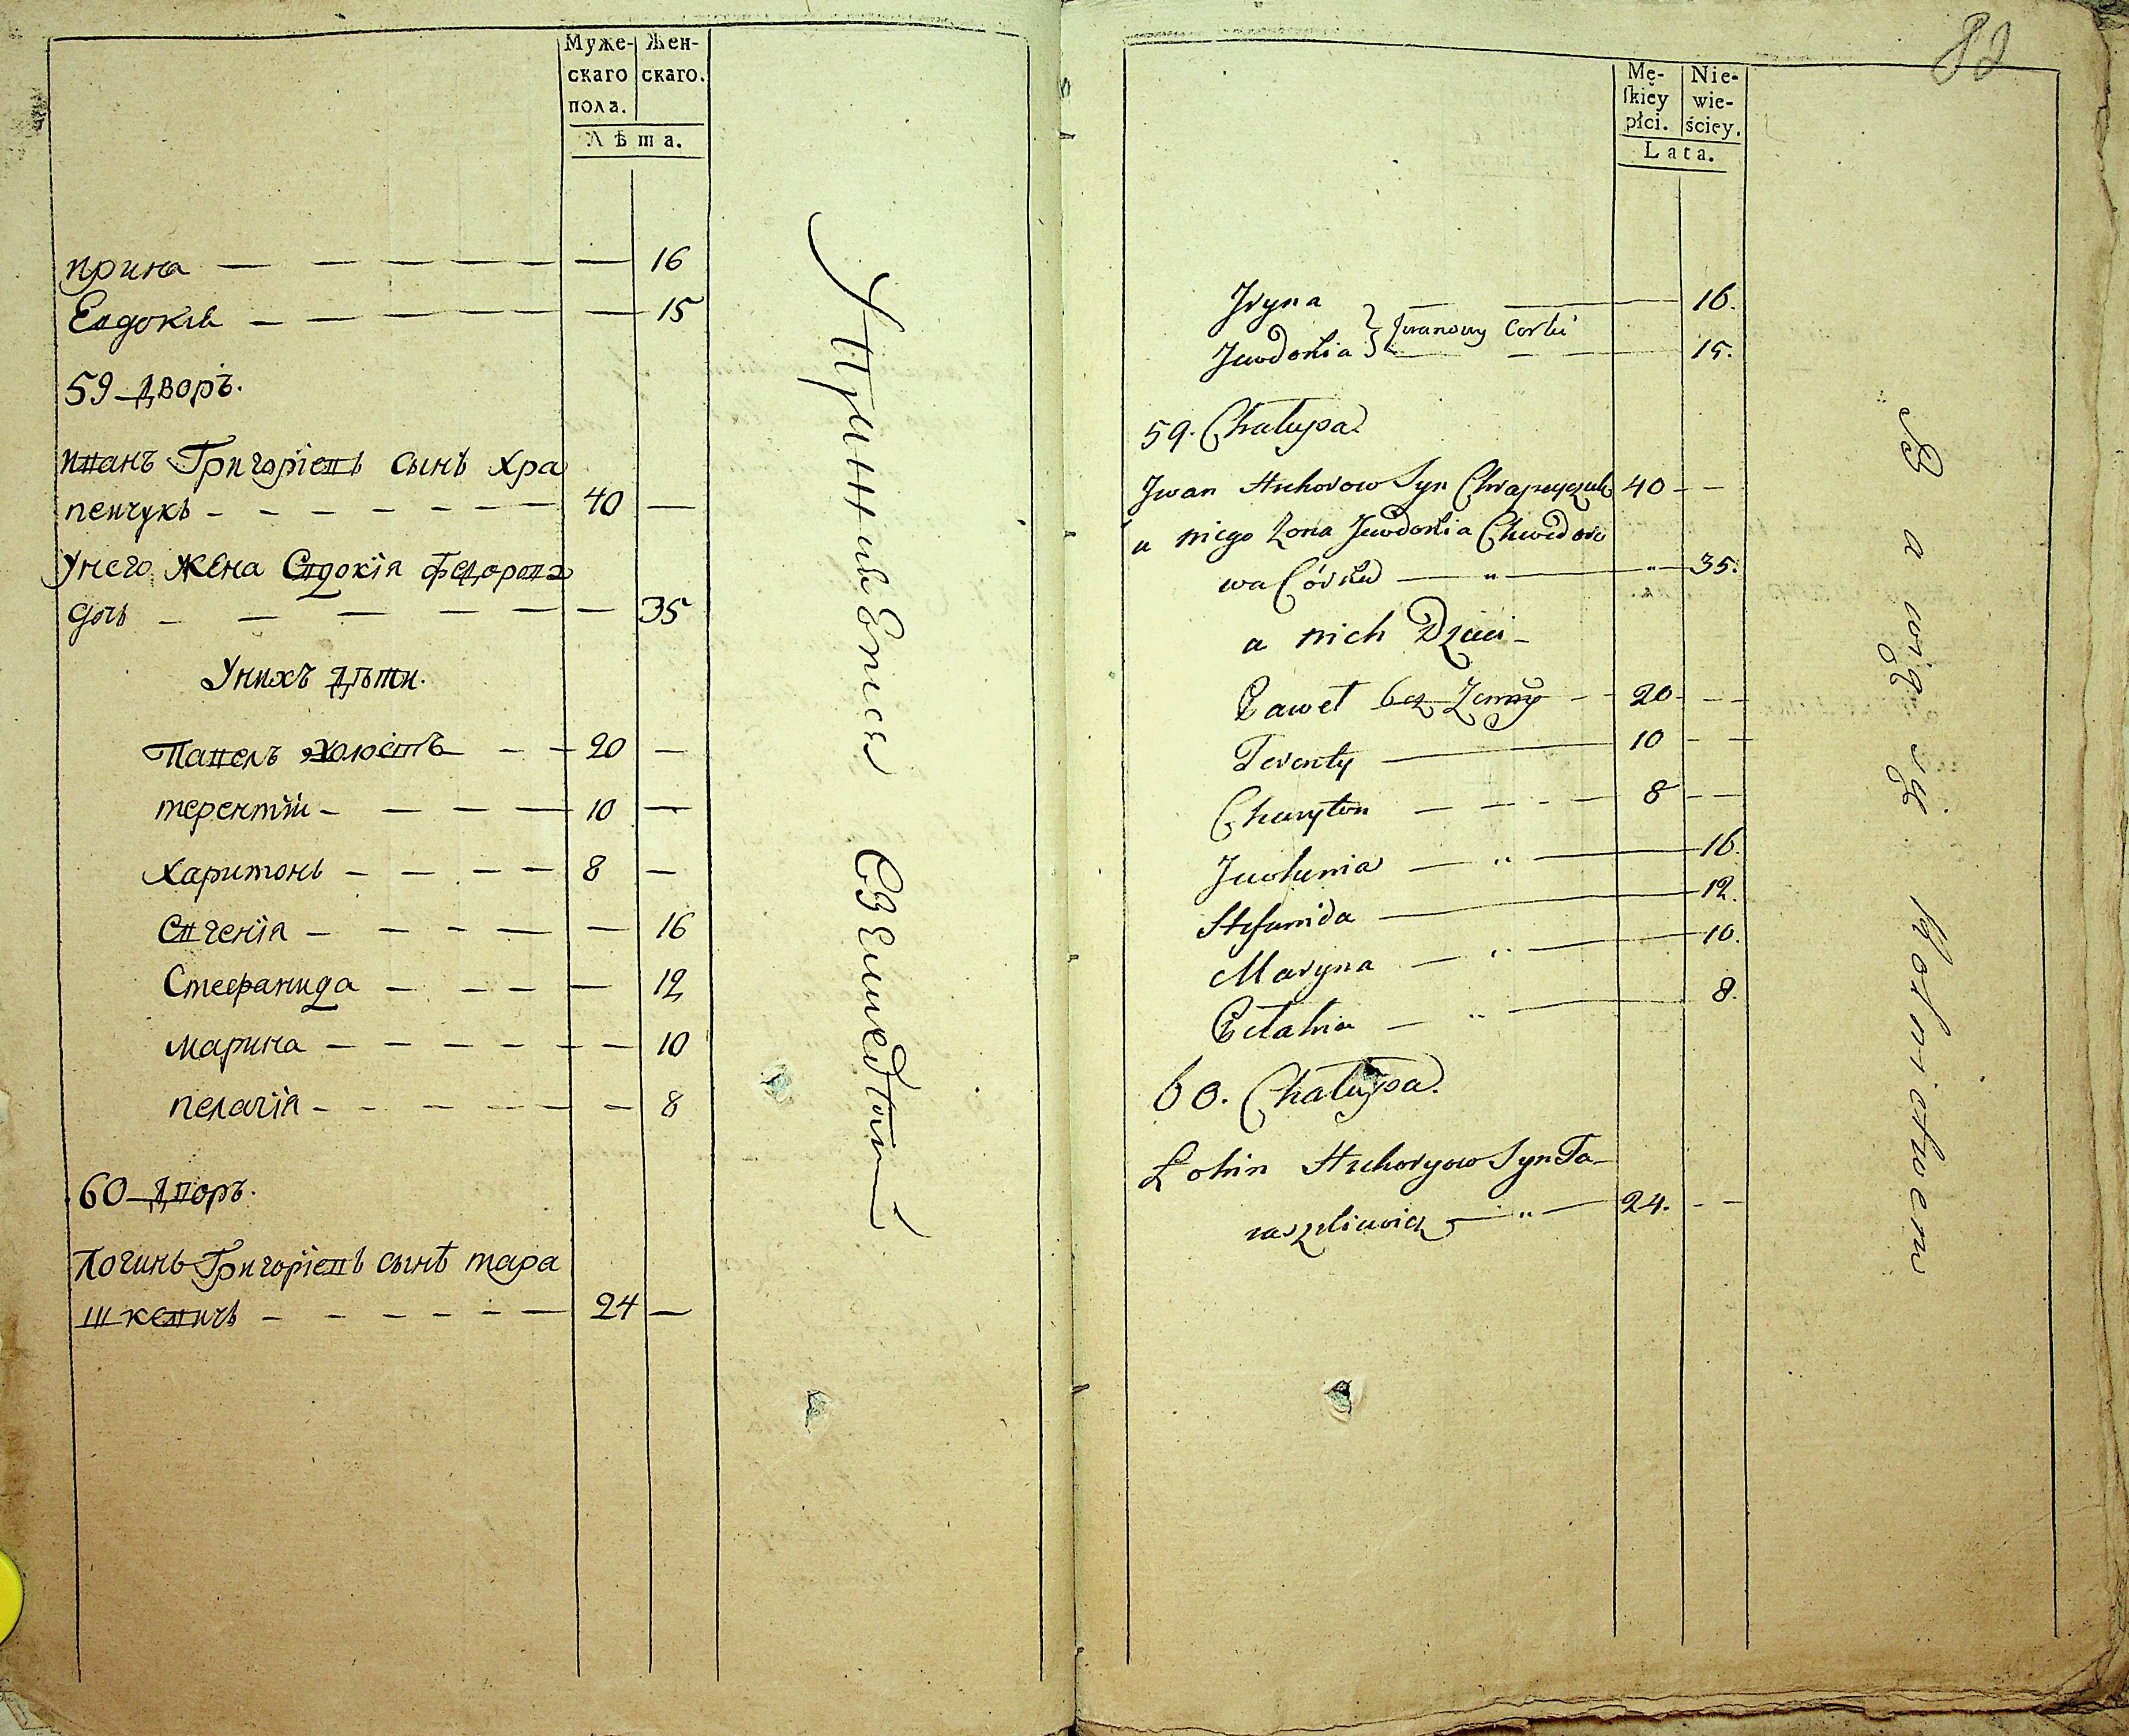 Муже-
скаго
пола.
Жен-
скаго.
Лѣта.
Ирина — — — — — — 16
Евдокія — — — — — — 15
59 Дворъ.
Иванъ Григоріевъ сынъ Хра
пенчукъ - - - - - - - 40 —
Унего жена Евдокія Федорова
дочь — — — — — — 35
Унихъ дѣти.
Павелъ холостъ — — 20 —
терентій — — — — 10 —
Харитонъ — — — — 8 —
Евгенія — — — — — 16
Стефанида — — — — 12
Марина — — — — — — 10
пелагія — — — — — — 8
60 Дворъ.
Логинъ Григоріевъ сынъ тара
шкевичъ — — — — — — 24 —
82
Mę-
ſkiey
płci.
Nie-
wie-
ściey.
Lata.
Iryna — — 16.
Jewdokia } Iwanowy Corki — 15.
59. Chałupa.
Iwan Hrehorow Syn Chrapeyczuk 40 - -
u niego Żona Jewdokia Chwedoro
wa Córka — " — " — 35.
u nich Dzieci -
Paweł bez Żenny - - 20 - -
Terenty — 10 - -
Charyton — — - — 8 - -
— " — 16.
Stefanida — 12.
Maryna — " — 10.
Pełahia — " — 8.
60. Chałupa.
Łohin Hrehoryow Syn Ta-
raszkiewicz — " — 24. - -